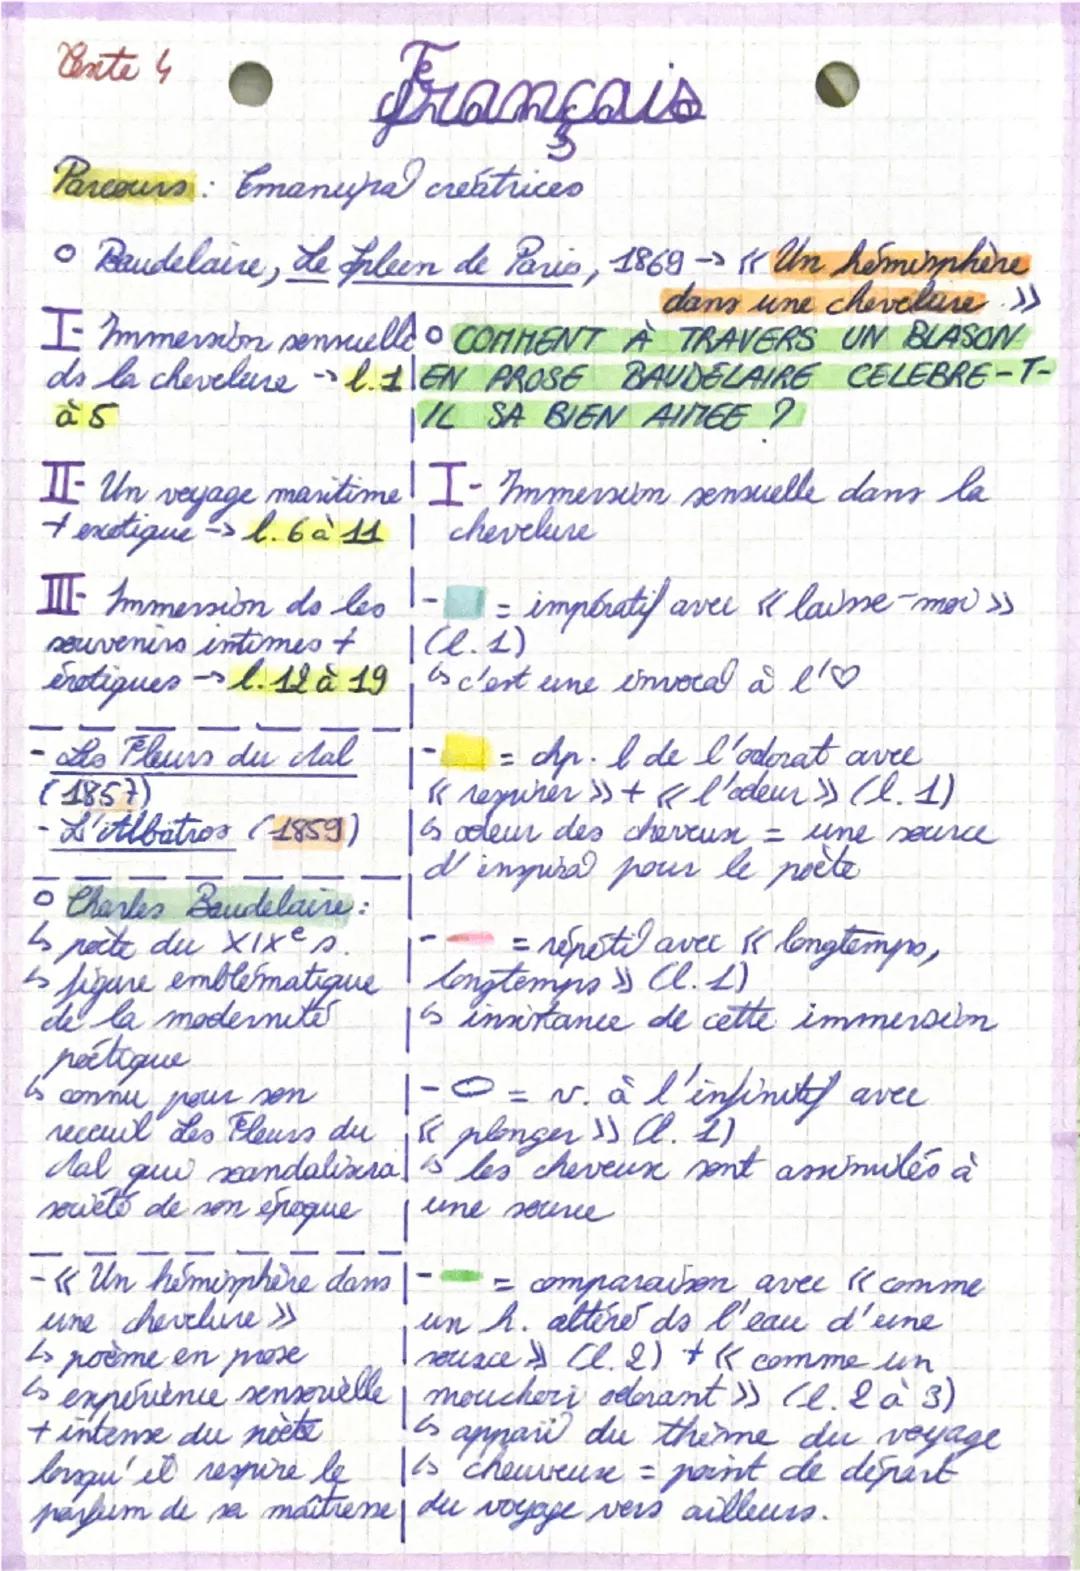 Texte 4
Français
Parcours : Emancipa° créatrices
o Baudelaire, Le Spleen de Paris, 1869 -> « Un hémisphère
dans une chevelure. »
I- Immersion sensuelle
ds la chevelure -> l.1
à 5
II- Un voyage maritime
+ exotique -> l. 6 à 11
III- Immersion ds les
souvenirs intimes +
érotiques -> l. 12 à 19
- Les Fleurs du Mal
(1857)
- L'Albatros (1859)
o Charles Baudelaire :
↳ poète du XIXe s.
↳ figure emblématique
de la modernité
poétique
↳ connu pour son
recueil Les Fleurs du
Mal qui scandalisera
société de son époque
- « Un hémisphère dans
une chevelure »
↳ poème en prose
↳ expérience sensorielle
+ intense du poète
lorsqu'il respire le
parfum de sa maîtresse
o COMMENT À TRAVERS UN BLASON
EN PROSE BAUDELAIRE CELEBRE-T-
IL SA BIEN AIMEE ?
I- Immersion sensuelle dans la
chevelure
- = impératif avec « laisse-moi »
(l.1)
↳ c'est une invoca° à l'♡
- = chp. l de l'odorat avec
« respirer » + « l'odeur » (l.1)
↳ odeur des cheveux = une source
d'inspira° pour le poète
- = répéti° avec « longtemps,
longtemps » (l.1)
↳ insistance de cette immersion
- = v. à l'infinitif avec
« plonger » (l.1)
↳ les cheveux sont assimilés à
une source
- = comparaison avec « comme
un h. altéré ds l'eau d'une
source » (l.2) + « comme un
mouchoir odorant » (l.2 à 3)
↳ du thème du voyage
↳ = point de départ
du voyage vers ailleurs.